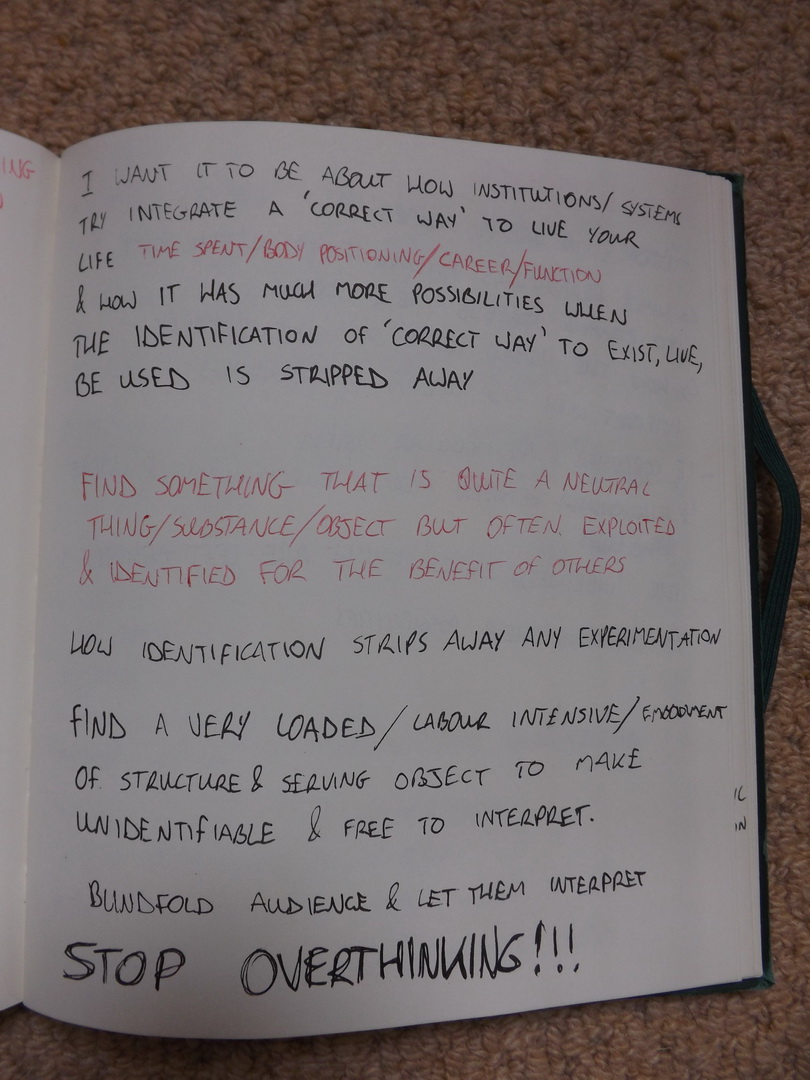 ING
I WANT IT TO BE ABOUT HOW INSTITUTIONS/ SYSTEMS
TRY INTEGRATE A 'CORRECT WAY' TO LIVE YOUR
LIFE TIME SPENT/BODY POSITIONING/CAREER/FUNCTION
& HOW IT HAS MUCH MORE POSSIBILITIES WHEN
THE IDENTIFICATION OF 'CORRECT WAY' TO EXIST, LIVE,
BE USED IS STRIPPED AWAY
FIND SOMETHING THAT IS QUITE A NEUTRAL
THING/SUBSTANCE/OBJECT BUT OFTEN EXPLOITED
& IDENTIFIED FOR THE BENEFIT OF OTHERS
HOW IDENTIFICATION STRIPS AWAY ANY EXPERIMENTATION
FIND A VERY LOADED/LABOUR INTENSIVE/EMBODIMENT
OF STRUCTURE & SERVING OBJECT TO MAKE
UNIDENTIFIABLE & FREE TO INTERPRET.
BLINDFOLD AUDIENCE & LET THEM INTERPRET
STOP OVERTHINKING!!!
IN